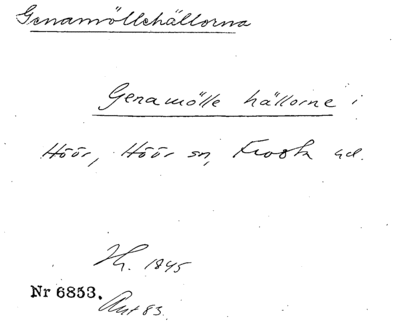 Genamöllehällorna
Genamölle hällorne i
Höör, Höör sn, Frosta hd.
H. 1845
Nr 6853.
Ant 83.